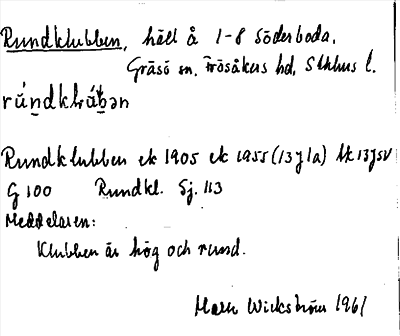 Rundklubben, häll å 1-8 Söderboda,
Gräsö sn. Frösåkers hd, Sthlms l.
rúndklúbən
Rundklubben ek 1905 ek 1955 (13 J 1a) tk 13 J SV
G 100 Rundkl. Sj. 113
Meddelaren:
Klubben är hög och rund.
Mats Wickström 1961